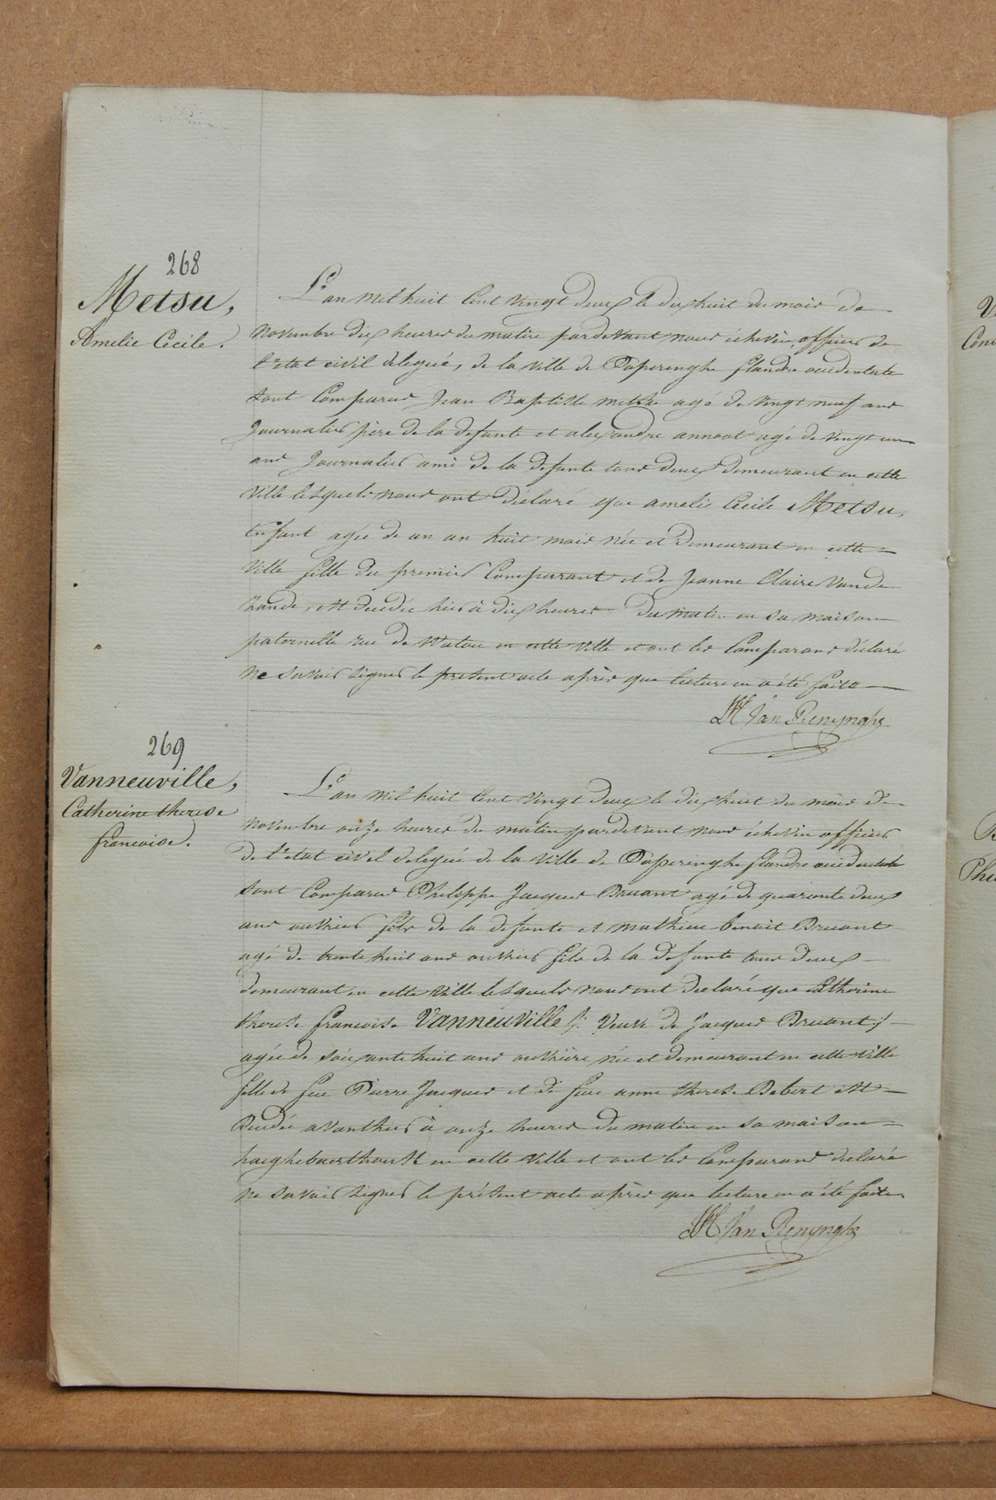 268
Metsu,
Amelie Cecile.
L'an mil huit Cent vingt deux le dix huit du mois de
novembre dix heures du matin pardevant nous échevin officier de
l'etat civil délégué, de la ville de Poperinghe flandre occidentale
sont Comparus Jean Baptiste metsu agé de vingt neuf ans
Journalier père de la défunte et alexandre annoot agé de vingt un
ans Journalier ami de la défunte tous deux demeurant en cette
ville lesquels nous ont déclaré que amelie Cecile Metsu,
Enfant agée de un an huit mois née et demeurant en cette
ville fille du premier Comparant et de Jeanne Claire Vande
Zande, est décédée hier à dix heures du matin en sa maison
paternelle rue de Watou en cette ville et ont les Comparans déclaré
ne savoir signer le présent acte après que lecture en a été faite
Van Renynghe
269
Vanneuville,
Catherine therese
francoise.
L'an mil huit Cent vingt deux le dix huit du mois de
novembre onze heures du matin pardevant nous échevin officier
de l'etat civil delegué de la ville de Poperinghe flandre occidentale
sont Comparus Philippe Jacques Bruant agé de quarante deux
ans ouvrier fils de la defunte et mathieu benoit Bruant
agé de trente huit ans ouvrier fils de la defunte tous deux
demeurant en cette ville lesquels nous ont declaré que Catherine
therese francoise Vanneuville /: Veuve de Jacques Bruant :/
agée de soixante huit ans ouvrière, née et demeurant en cette ville
fille de feu Pierre Jacques et de feue anne therese Debert est
Decedée avanthier à onze heures du matin en sa maison
en cette ville et ont les Comparans declaré
ne savoir signer le présent acte après que lecture en a été faite
Van Renynghe